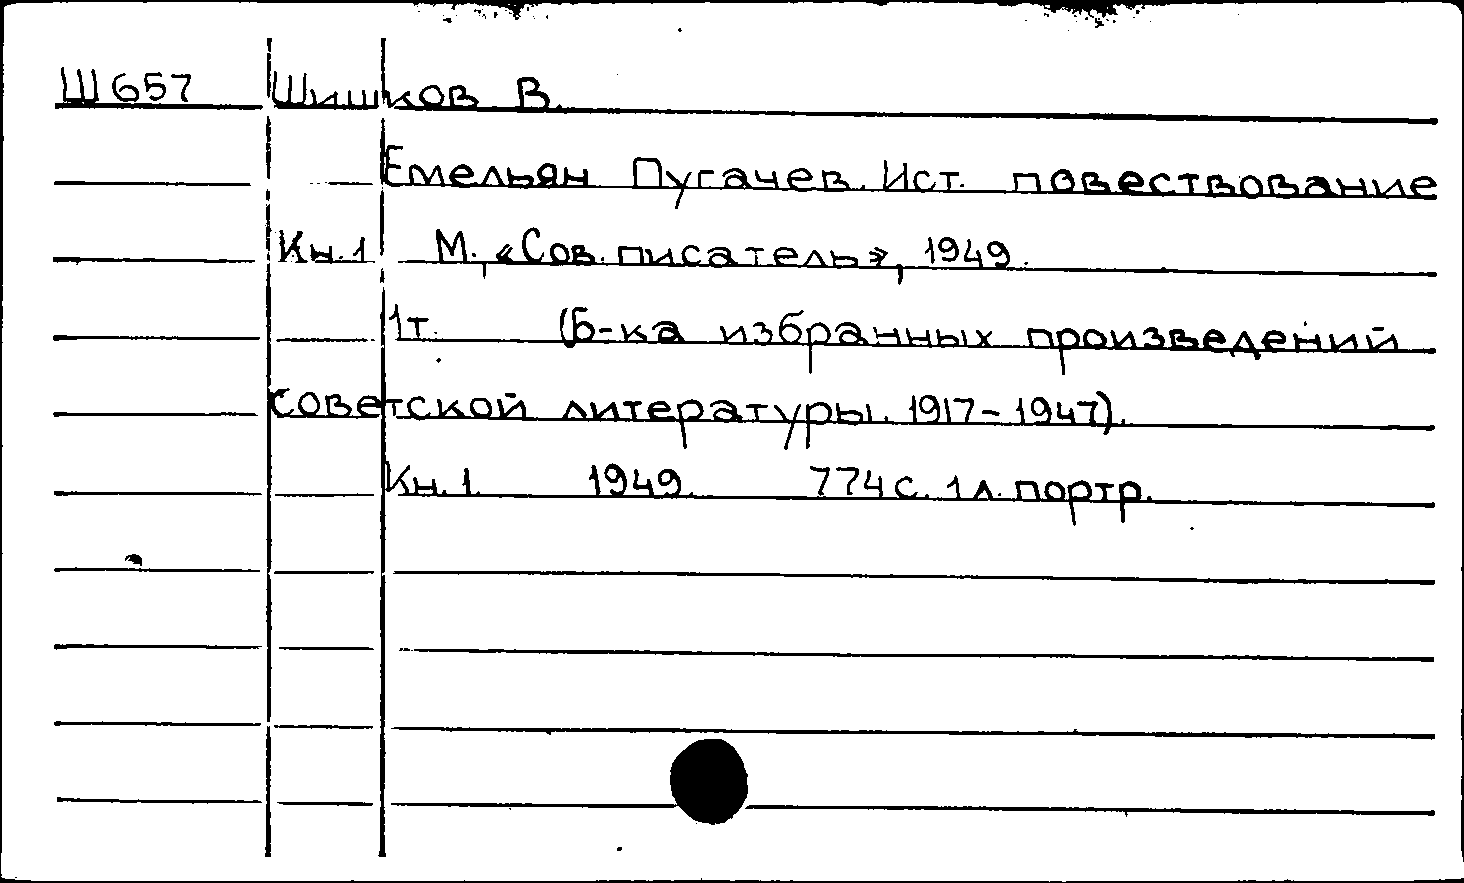 Ш657 Шишков В.
Емельян Пугачев. Ист. повествование
Кн.1 М., «Сов. писатель», 1949.
1т. (Б-ка избранных произведений
советской литературы. 1917-1947).
Кн. 1. 1949. 774 с. 1 л. портр.